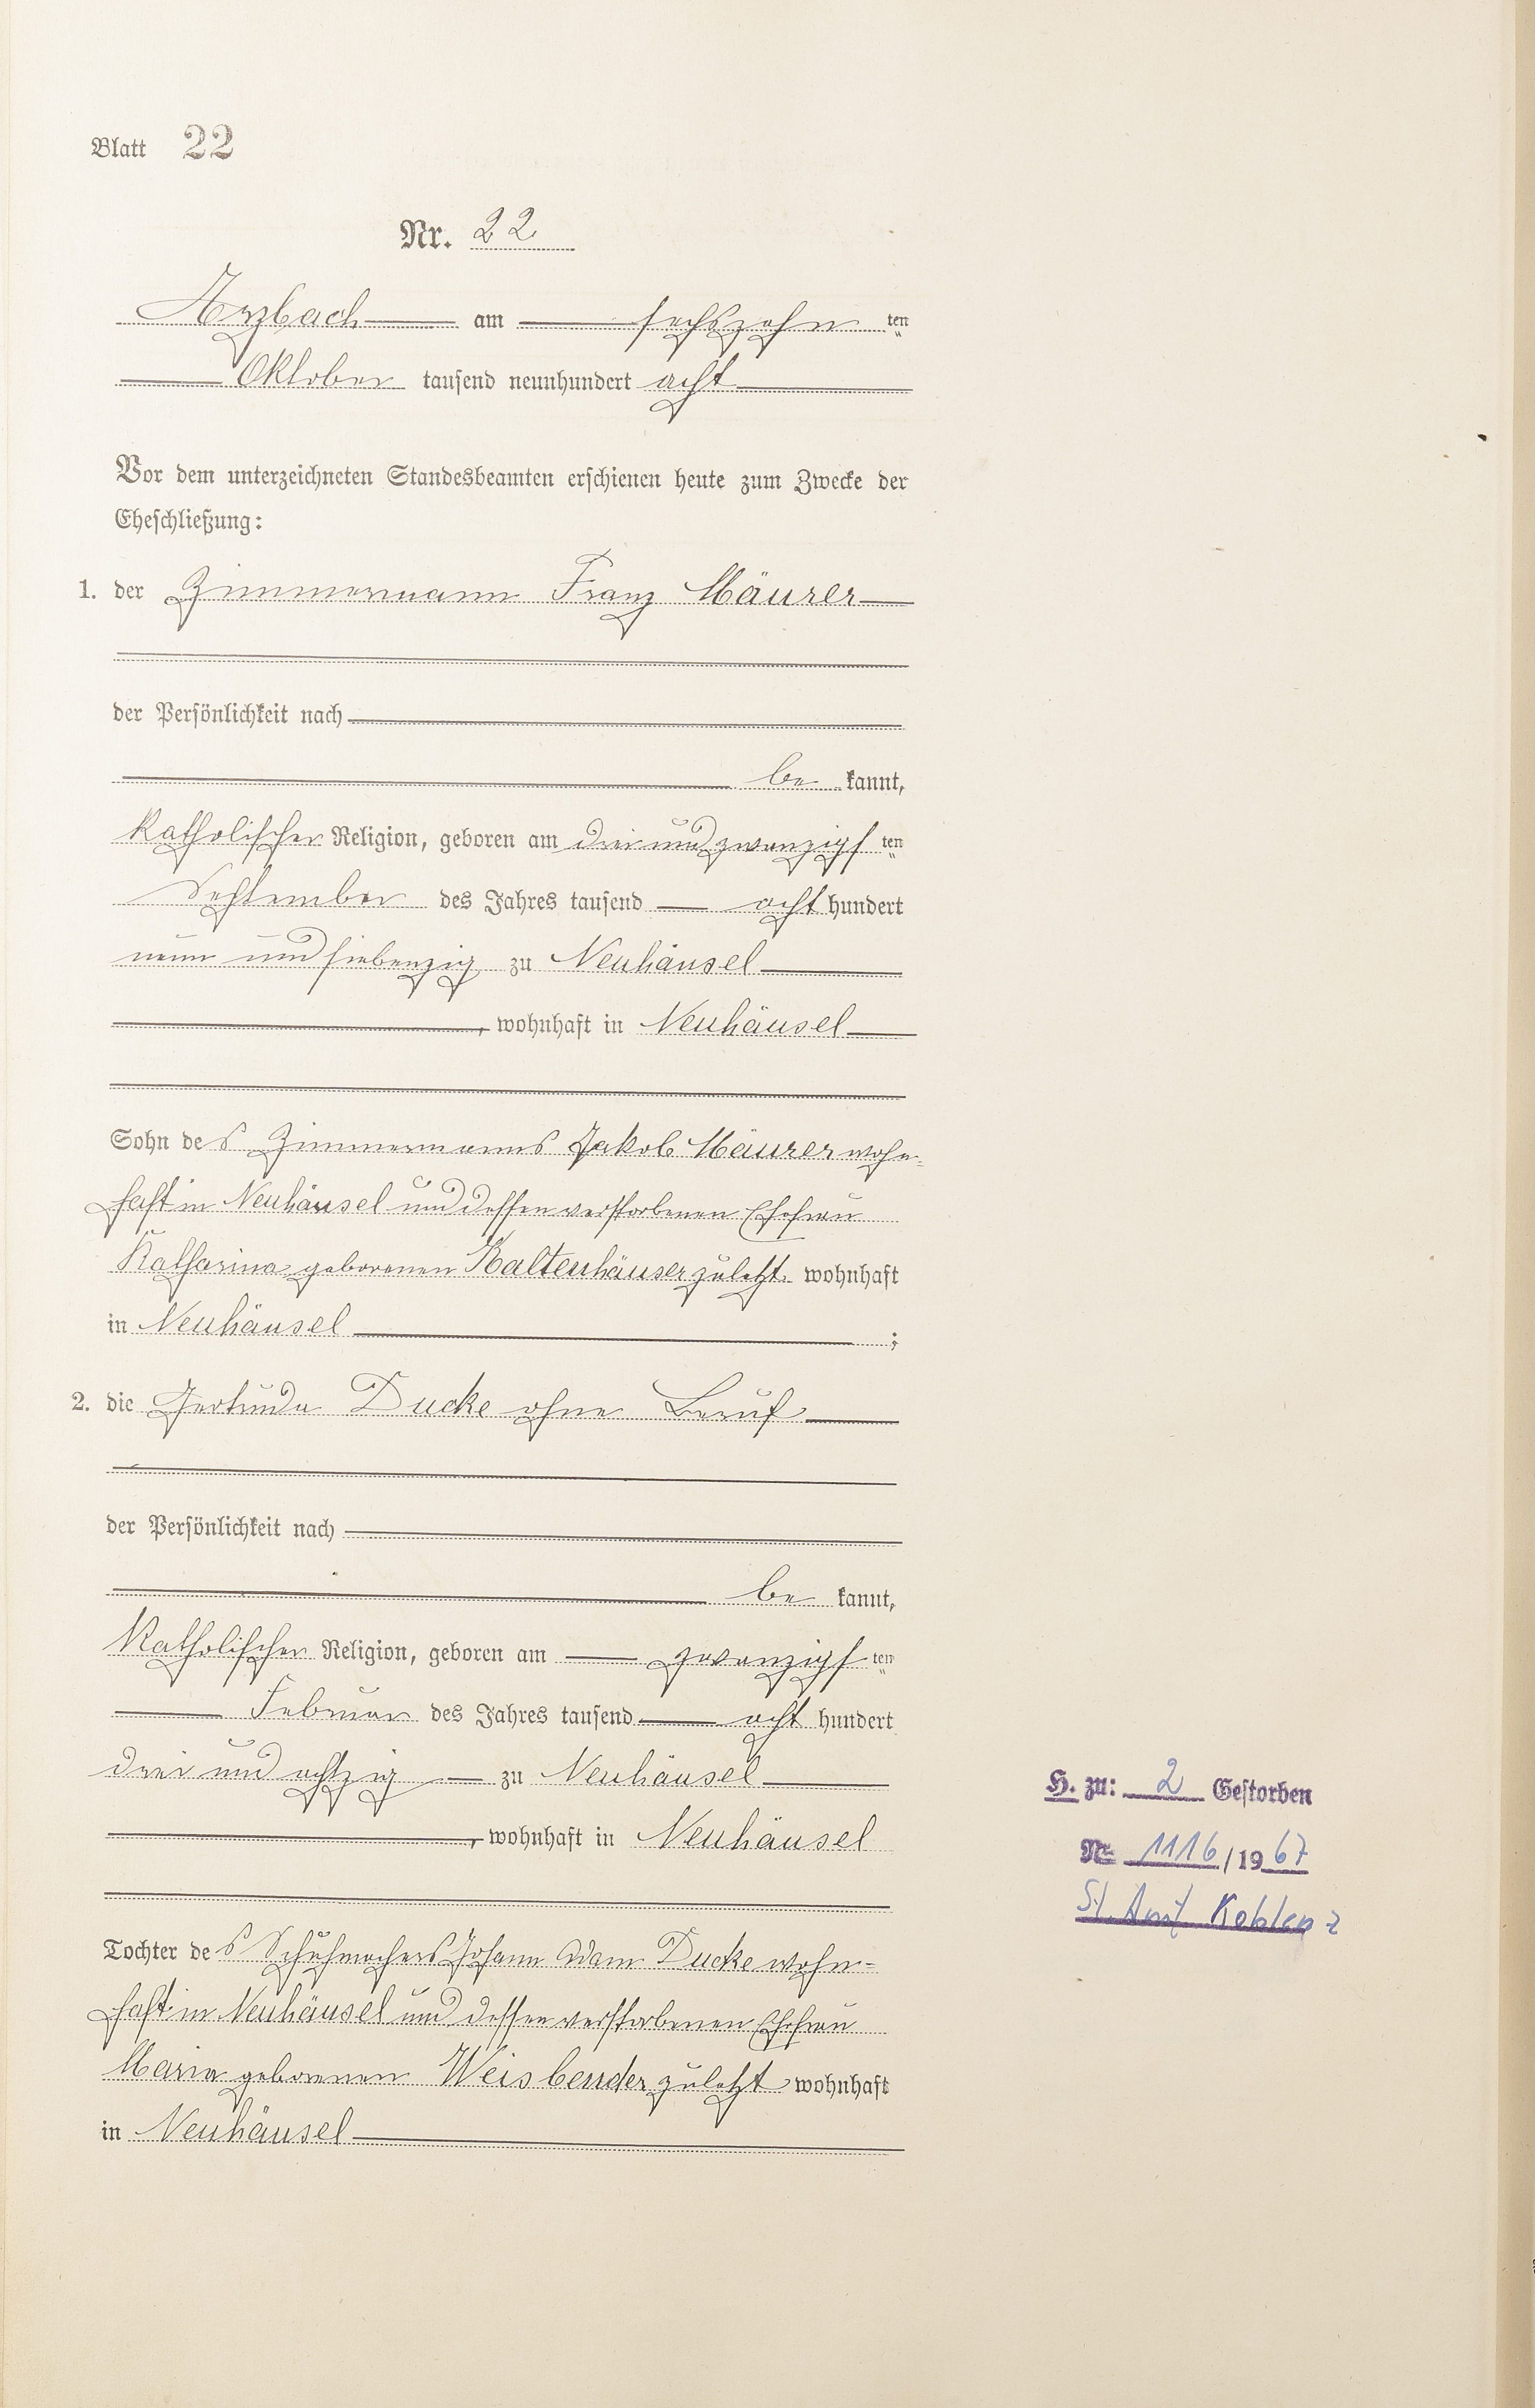 Blatt 22
Nr. 22
Arzbach am sechszehn ten
Oktober tausend neunhundert acht
Vor dem unterzeichneten Standesbeamten erschienen heute zum Zwecke der
Eheschließung:
1. der Zimmermann Franz Mäurer
der Persönlichkeit nach
be kannt,
katholischer Religion, geboren am drei und zwanzigs ten
September des Jahres tausend acht hundert
neun und siebenzig zu Neuhäusel
, wohnhaft in Neuhäusel
Sohn des Zimmermanns Jakob Mäurer wohn-
haft in Neuhäusel und dessen verstorbenen Ehefrau
Katharina geborenen Kaltenhäuser zuletzt wohnhaft
in Neuhäusel ;
2. die Gertruda Ducke ohne Beruf
der Persönlichkeit nach
be kannt,
katholischer Religion, geboren am zwanzigs ten
Februar des Jahres tausend acht hundert
drei und achtzig zu Neuhäusel
, wohnhaft in Neuhäusel
Tochter des Schuhmachers Johann Adam Ducke wohn-
haft in Neuhäusel und dessen verstorbenen Ehefrau
Maria geborenen Weisbender zuletzt wohnhaft
in Neuhäusel
H. zu: 2 Gestorben
Nr. 1116/1967
St. Amt Koblenz